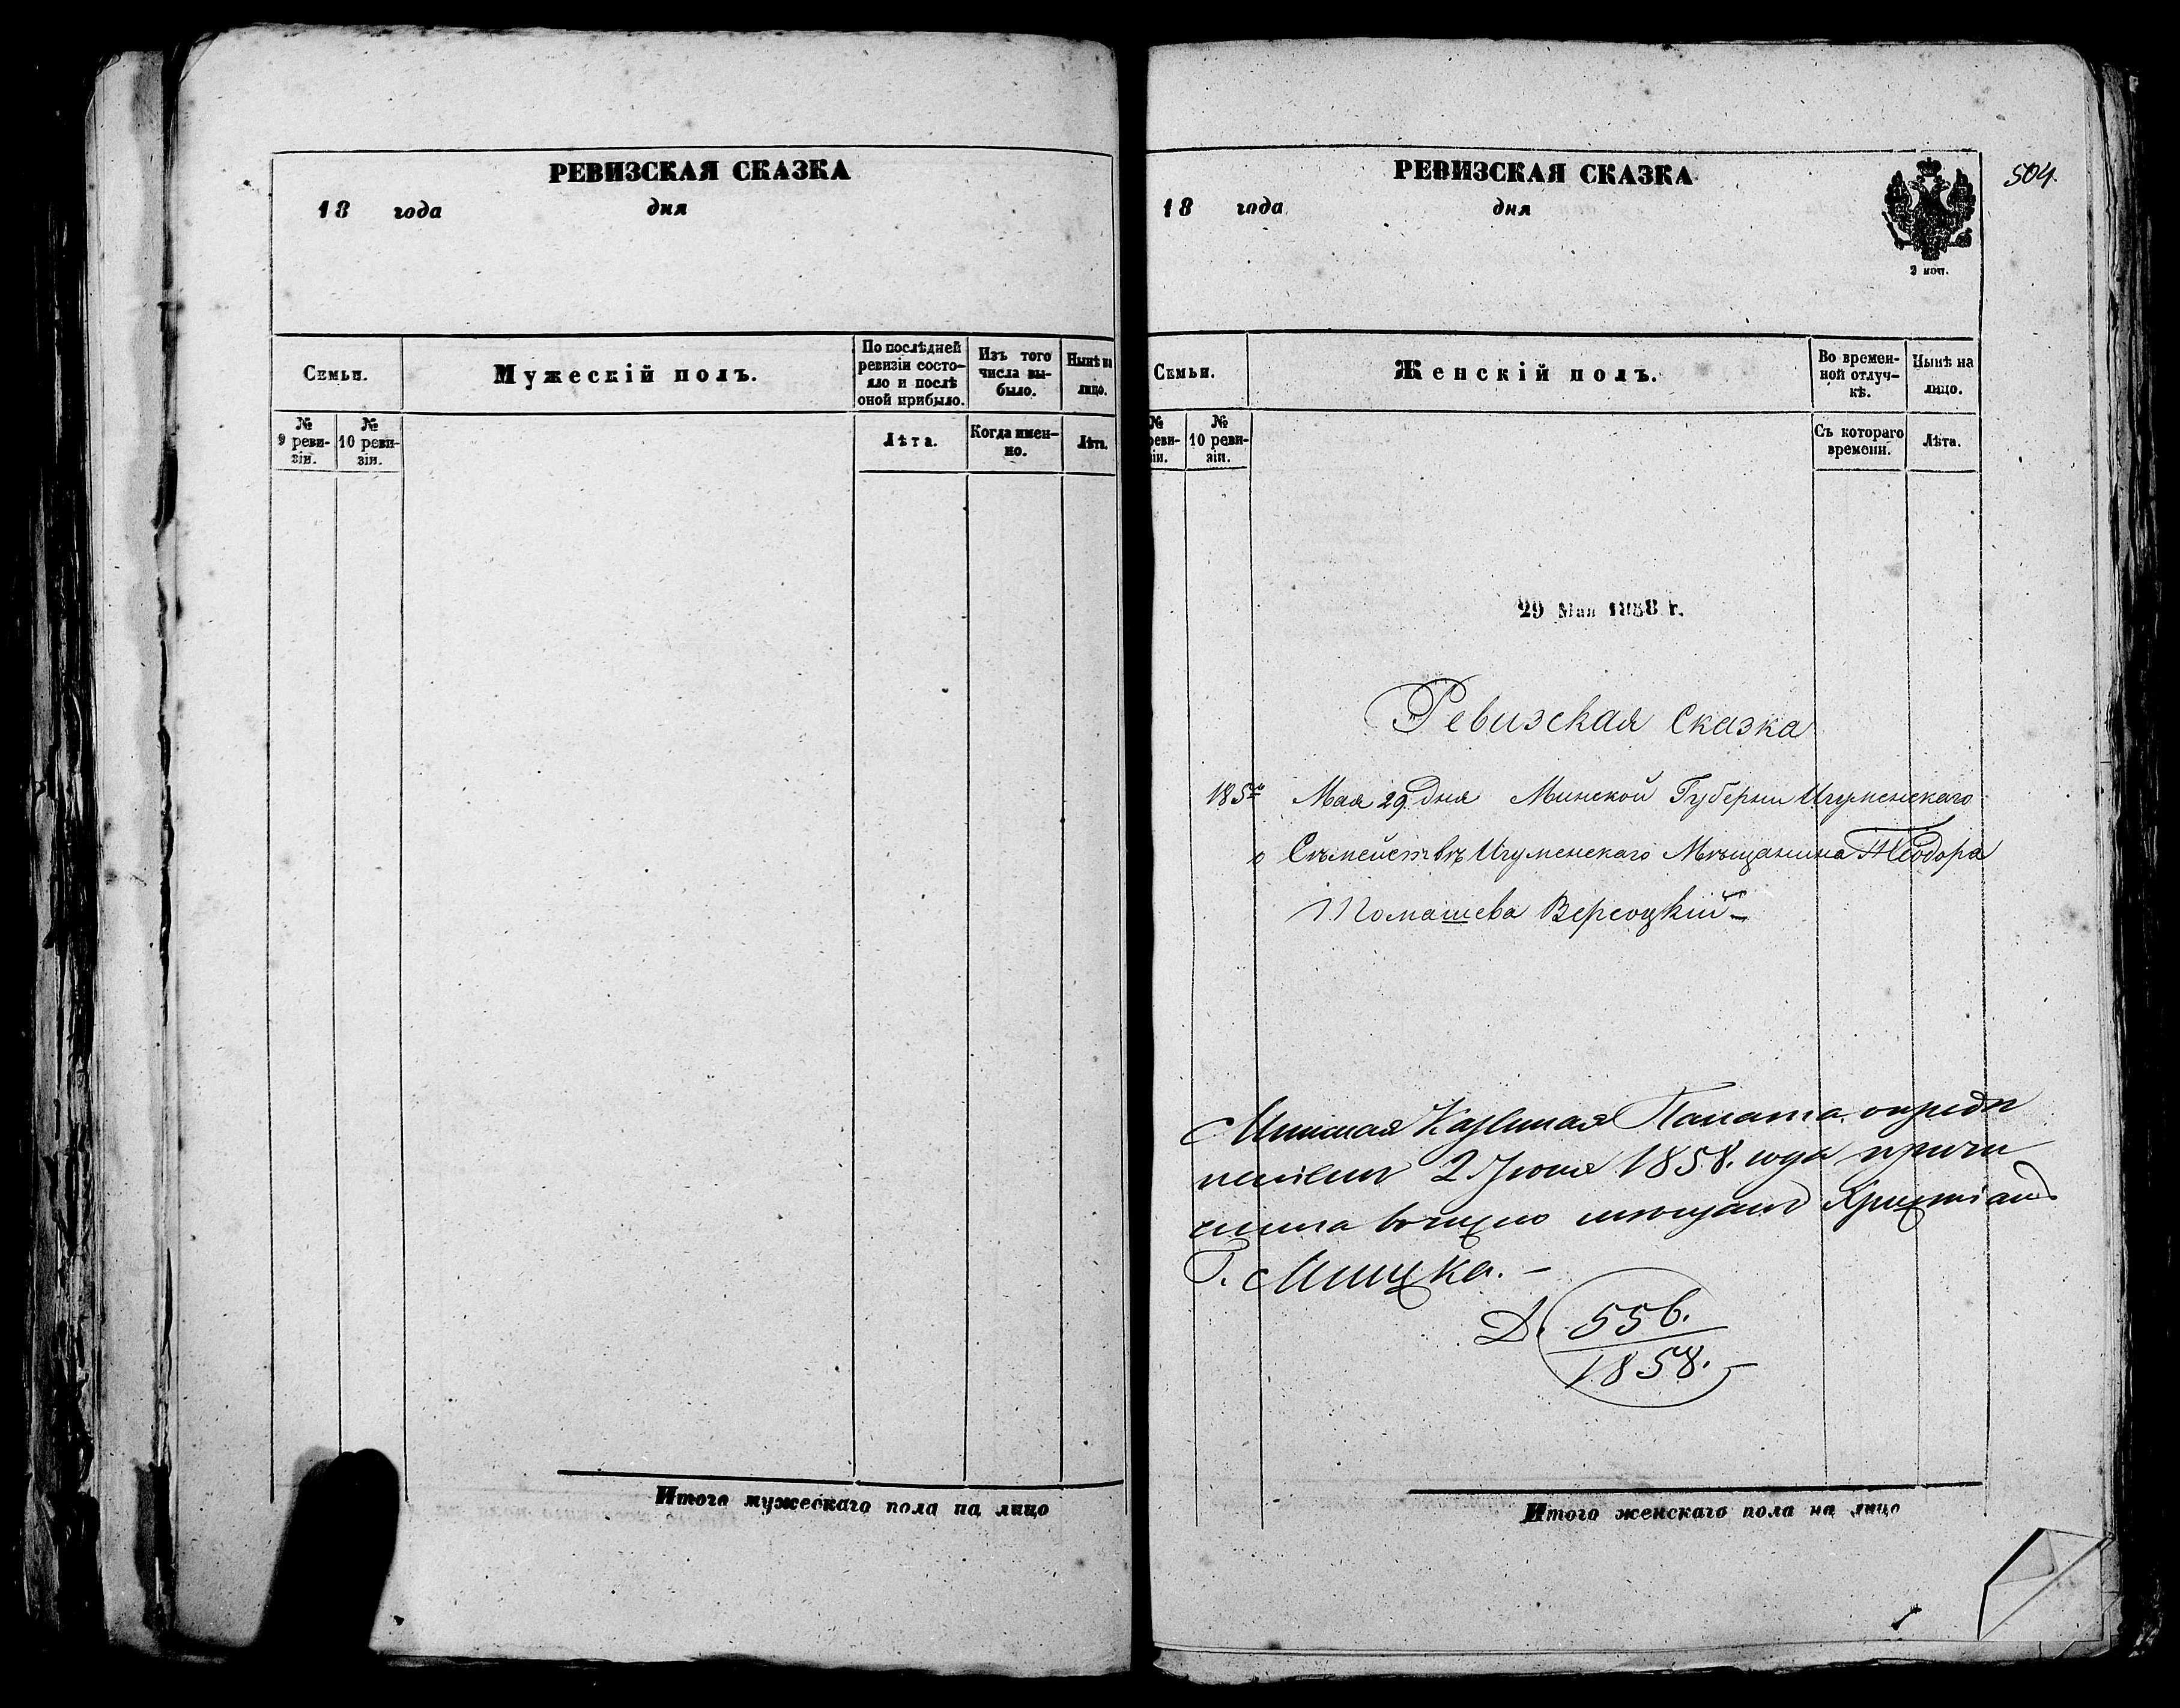 РЕВИЗСКАЯ СКАЗКА
18 года дня
Семьи.
Мужескій полъ.
По послѣдней ревизіи состо-
яло и послѣ оной прибыло.
Изъ того числа вы-
было.
Нынѣ на лицо.
№ 9 реви-
зіи.
№ 10 реви-
зіи.
Лѣта.
Когда имен-
но.
Лѣта.
Итого мужескаго пола на лицо
РЕВИЗСКАЯ СКАЗКА
504.
18 года дня
2 коп.
Семьи.
Женскій полъ.
Во времен-
ной отлуч-
кѣ.
Нынѣ на лицо.
№
реви-
зіи.
№ 10 реви-
зіи.
Съ котораго времени.
Лѣта.
29 Мая 1858 г.
Ревизская Сказка
Мая 29 Дня Минской Губерніи Игуменскаго
о Съмействѣ Игуменскаго Мѣщанина Теодора
Томашева Версоцкій
Минская Казенная Палата опредѣ
леніемъ 2 Іюня 1858. года причи
слила мѣщанъ Христіанъ
Г. Минска.
Д. 556.
1858.
Итого женскаго пола на лицо